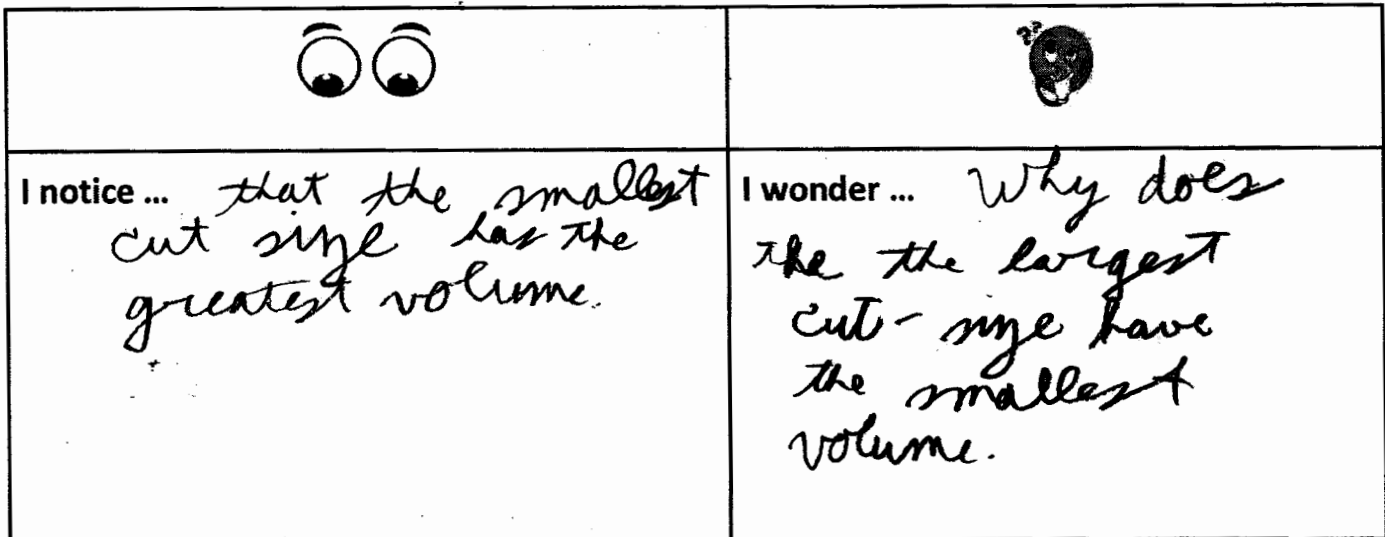 ??
I notice ... that the smallest
cut size has the
greatest volume.
I wonder ... Why does
the the largest
cut-size have
the smallest
volume.